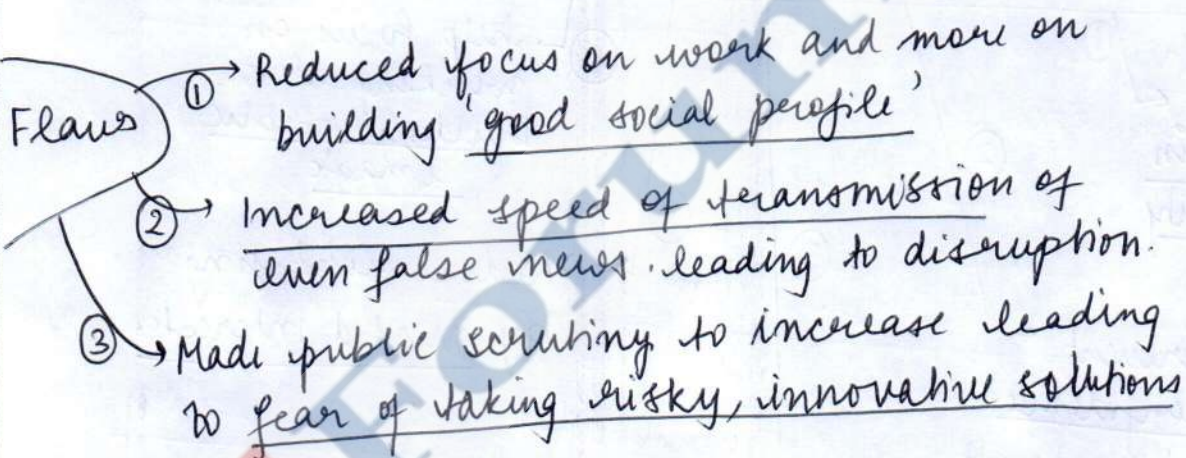 Flaws
① → Reduced focus on work and more on
building 'good social profile'
② → Increased speed of transmission of
even false news. leading to disruption.
③ → Made public scrutiny to increase leading
to fear of taking risky, innovative solutions
Forum